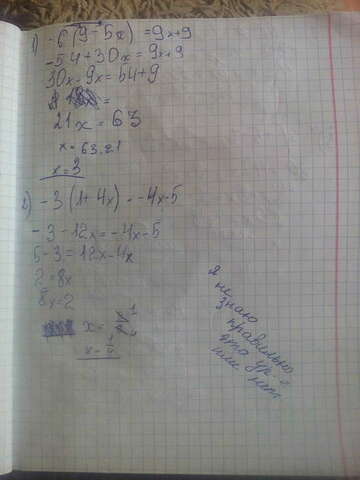 1) -6(9-5x) = 9x+9
-54+30x = 9x+9
30x-9x=54+9
21x = 63
x = 63:21
x = 3
2) -3(1+4x) = -4x-5
-3-12x=-4x-5
5-3=12x-4x
2=8x
8x=2
x = 2/8
x = 1/4
я
не
знаю
правильно
это ур-е
или
нет